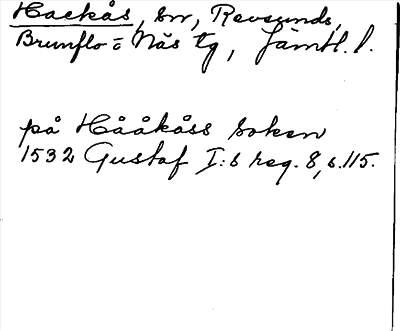 Hackås, sn, Revsunds,
Brunflo o Näs tg, Jämtl. l.
på Hååkåss soken
1532 Gustaf I:s reg. 8, s. 115.